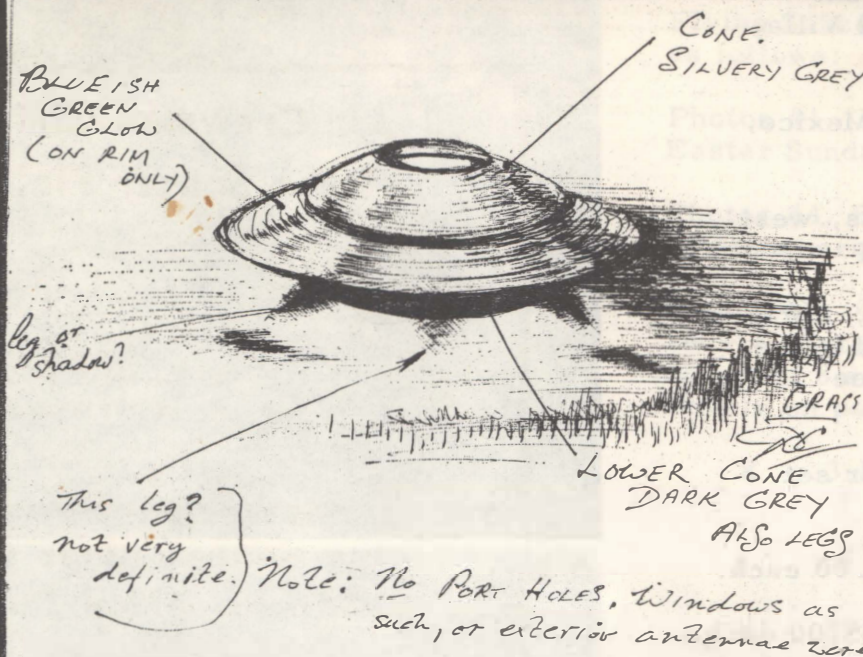 BLUEISH
GREEN
GLOW
(ON RIM
ONLY)
CONE.
SILVERY GREY
leg or
shadow?
GRASS
LOWER CONE
DARK GREY
ALSO LEGS
This leg?
not very
definite.
Note: No PORT HOLES, Windows as
such, or exterior antennae were
Mexico,
00 each.